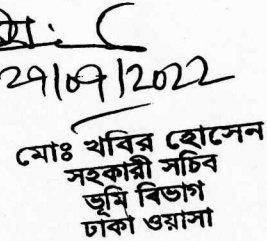 29|09|2022
মোঃ খবির হোসেন
সহকারী সচিব
ভূমি বিভাগ
ঢাকা ওয়াসা